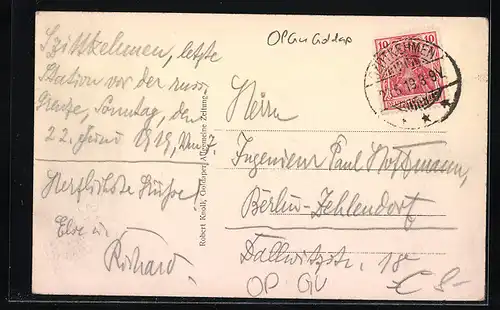 OPGu Goldap
Szittkehmen, letzte
Station vor der russ.
Grenze, Sonntag, den
22. Juni 1919,
Herzlichste Grüsse!
Else u.
Richard.
Robert Knoll, Goldaper Allgemeine Zeitung
10 10
KEHMEN
Herrn
Ingenieur Paul Hoffmann,
Berlin-Zehlendorf
Dallwitzstr. 18
OP GU
€ 8-